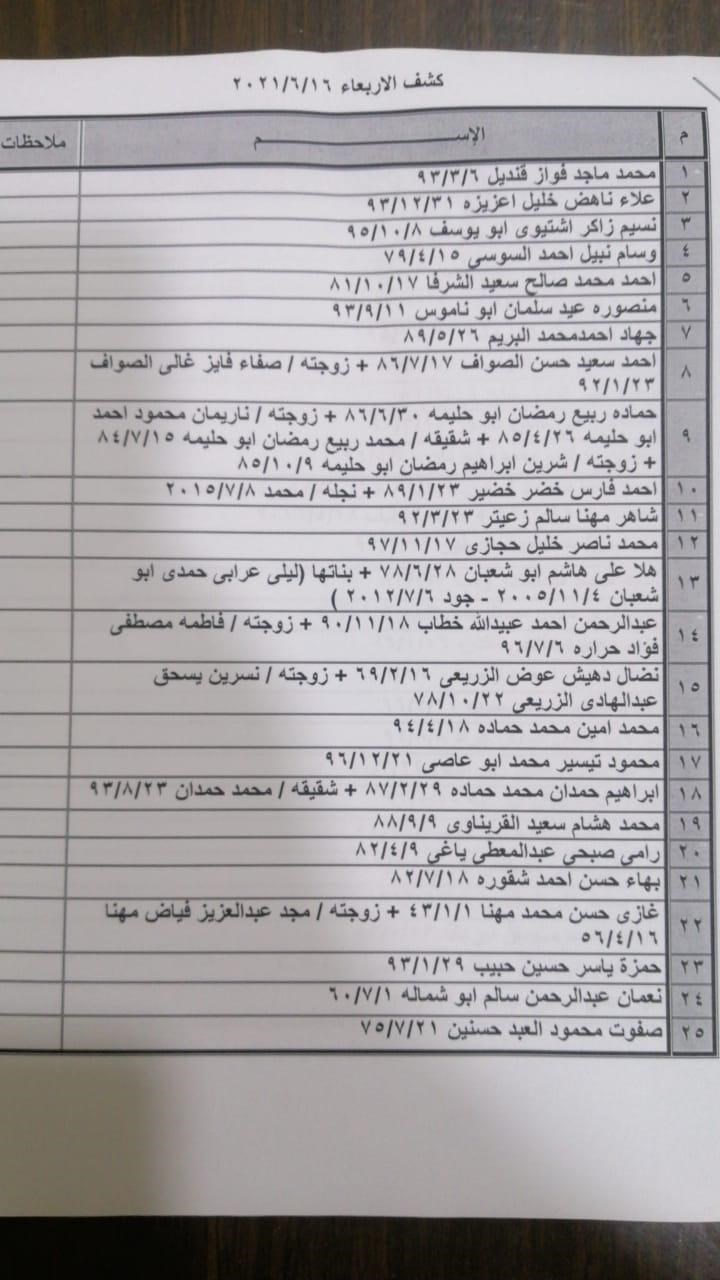 كشف الاربعاء ٢٠٢١/٦/١٦
م الإســـــــــــم ملاحظات
١ محمد ماجد فواز قنديل ٩٣/٣/٦
٢ علاء ناهض خليل اعزيزه ٩٣/١٢/٣١
٣ نسيم زاكر اشتيوى ابو يوسف ٩٥/١٠/٨
٤ وسام نبيل احمد السوسى ٧٩/٤/١٥
٥ احمد محمد صالح سعيد الشرفا ٨١/١٠/١٧
٦ منصوره عيد سلمان ابو ناموس ٩٣/٩/١١
٧ جهاد احمدمحمد البريم ٨٩/٥/٢٦
٨ احمد سعيد حسن الصواف ٨٦/٧/١٧ + زوجته / صفاء فايز غالى الصواف
٩٢/١/٢٣
٩ حماده ربيع رمضان ابو حليمه ٨٦/٦/٣٠ + زوجته / ناريمان محمود احمد
ابو حليمه ٨٥/٤/٢٦ + شقيقه / محمد ربيع رمضان ابو حليمه ٨٤/٧/١٥
+ زوجته / شرين ابراهيم رمضان ابو حليمه ٨٥/١٠/٩
١٠ احمد فارس خضر خضير ٨٩/١/٢٣ + نجله / محمد ٢٠١٥/٧/٨
١١ شاهر مهنا سالم زعيتر ٩٢/٣/٢٣
١٢ محمد ناصر خليل حجازى ٩٧/١١/١٧
١٣ هلا على هاشم ابو شعبان ٧٨/٦/٢٨ + بناتها (ليلى عرابى حمدى ابو
شعبان ٢٠٠٥/١١/٤ - جود ٢٠١٢/٧/٦ )
١٤ عبدالرحمن احمد عبيدالله خطاب ٩٠/١١/١٨ + زوجته / فاطمه مصطفى
فؤاد حراره ٩٦/٧/٦
١٥ نضال دهيش عوض الزريعى ٦٩/٢/١٦ + زوجته / نسرين يسحق
عبدالهادى الزريعى ٧٨/١٠/٢٢
١٦ محمد امين محمد حماده ٩٤/٤/١٨
١٧ محمود تيسير محمد ابو عاصى ٩٦/١٢/٢١
١٨ ابراهيم حمدان محمد حماده ٨٧/٢/٢٩ + شقيقه / محمد حمدان ٩٣/٨/٢٣
١٩ محمد هشام سعيد القريناوى ٨٨/٩/٩
٢٠ رامى صبحى عبدالمعطى ياغى ٨٢/٤/٩
٢١ بهاء حسن احمد شقوره ٨٢/٧/١٨
٢٢ غازى حسن محمد مهنا ٤٣/١/١ + زوجته / مجد عبدالعزيز فياض مهنا
٥٦/٤/١٦
٢٣ حمزة ياسر حسين حبيب ٩٣/١/٢٩
٢٤ نعمان عبدالرحمن سالم ابو شماله ٦٠/٧/١
٢٥ صفوت محمود العبد حسنين ٧٥/٧/٢١